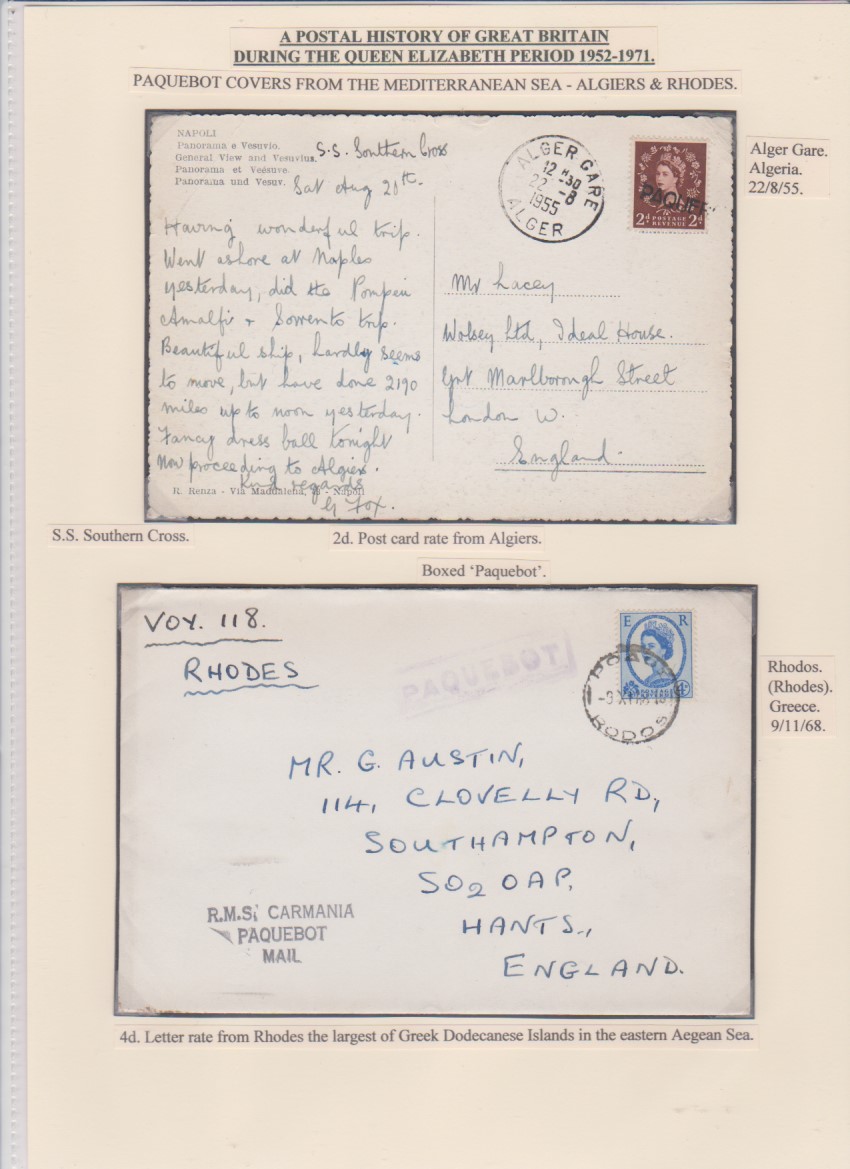 A POSTAL HISTORY OF GREAT BRITAIN
DURING THE QUEEN ELIZABETH PERIOD 1952-1971.
PAQUEBOT COVERS FROM THE MEDITERRANEAN SEA - ALGIERS & RHODES.
NAPOLI
Panorama e Vesuvio.
General View and Vesuvius.
Panorama et Veésuve.
Panorama und Vesuv.
S.S. Southern Cross
Sat Aug 20th.
Having wonderful trip.
Went ashore at Naples
yesterday, did the Pompeii
Amalfi + Sorrento trip.
Beautiful ship, hardly seems
to move, but have done 2190
miles up to noon yesterday.
Fancy dress ball tonight
Now proceeding to Algiers.
Kind regards
G Fox.
R. Renza - Via Maddalena, - Napoli
ALGER GARE
12 H 30
22 -8
1955
ALGER
PAQUEB
2d POSTAGE REVENUE 2d
Mr Lacey
Wolsey Ltd, Ideal House.
Grt Marlborough Street
London W.
England.
Alger Gare.
Algeria.
22/8/55.
S.S. Southern Cross.
2d. Post card rate from Algiers.
Boxed ‘Paquebot’.
VOY. 118.
RHODES
PAQUEBOT
E R
4d
RODOS
MR. G. AUSTIN,
114, CLOVELLY RD,
SOUTHAMPTON,
SO2 0AP,
HANTS.,
ENGLAND.
R.M.S. CARMANIA
PAQUEBOT
MAIL
Rhodos.
(Rhodes).
Greece.
9/11/68.
4d. Letter rate from Rhodes the largest of Greek Dodecanese Islands in the eastern Aegean Sea.